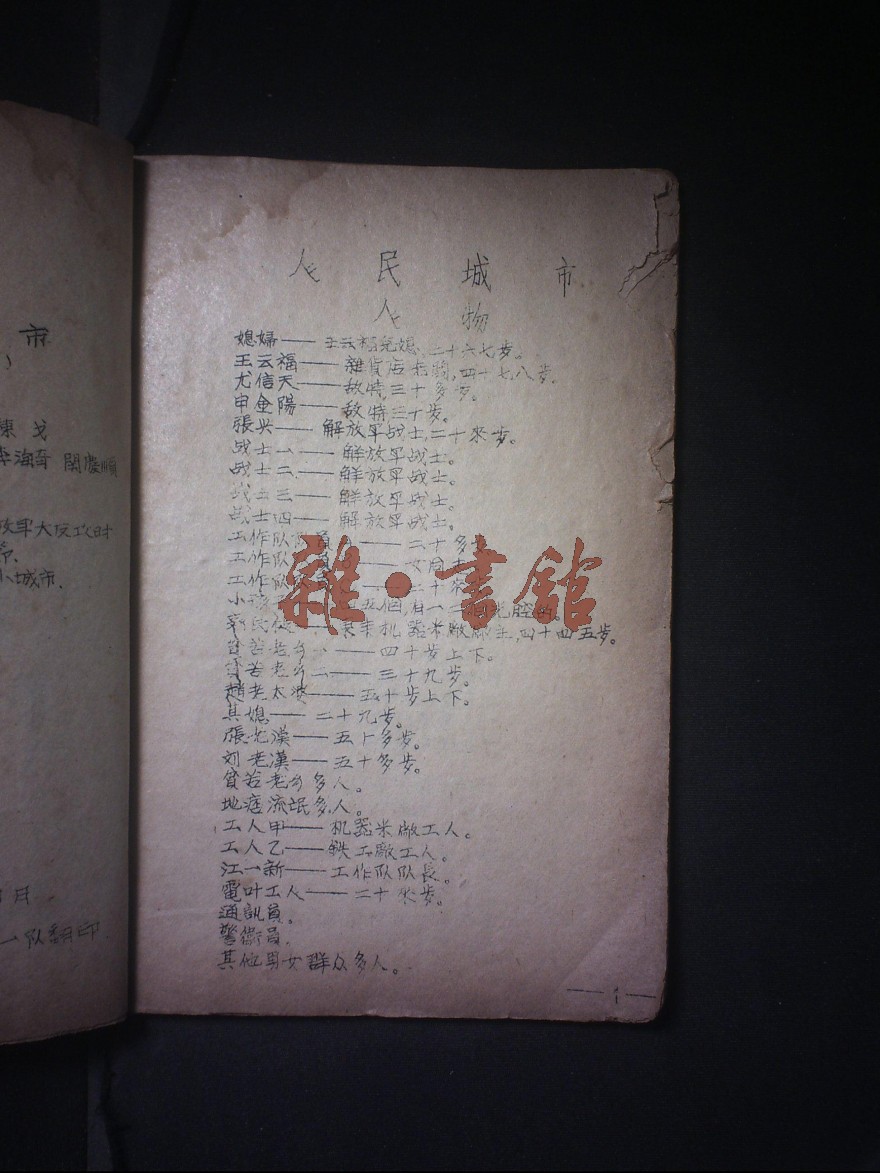 市
陳戈
李海奇 関慶順
放军大反攻时
節.
小城市.
月
一队翻印
人民城市
人物
媳婦——王云福兒媳,二十六七步。
王云福——雜貨店老闆,四十七八步。
尤信天——敌特,三十多步。
申金陽——敌特,三十步。
張兴——解放军战士,二十來步。
战士一——解放军战士。
战士二——解放军战士。
战士三——解放军战士。
战士四——解放军战士。
工作队員——二十多
工作队
工作队——二十來
小孩 個,有一二
机器米廠廠主,四十四五步。
貧苦老乡一——四十步上下。
貧苦老乡二——三十九步。
趙老太婆——五十步上下。
其媳——二十九步。
張老漢——五十多步。
刘老漢——五十多步。
貧苦老乡多人。
地痞流氓多人。
工人甲——机器米廠工人。
工人乙——鉄工廠工人。
江一新——工作队队長。
電灯工人——二十來步。
通訊員。
警衛員.
其他男女群众多人。
—1—
雜·書館